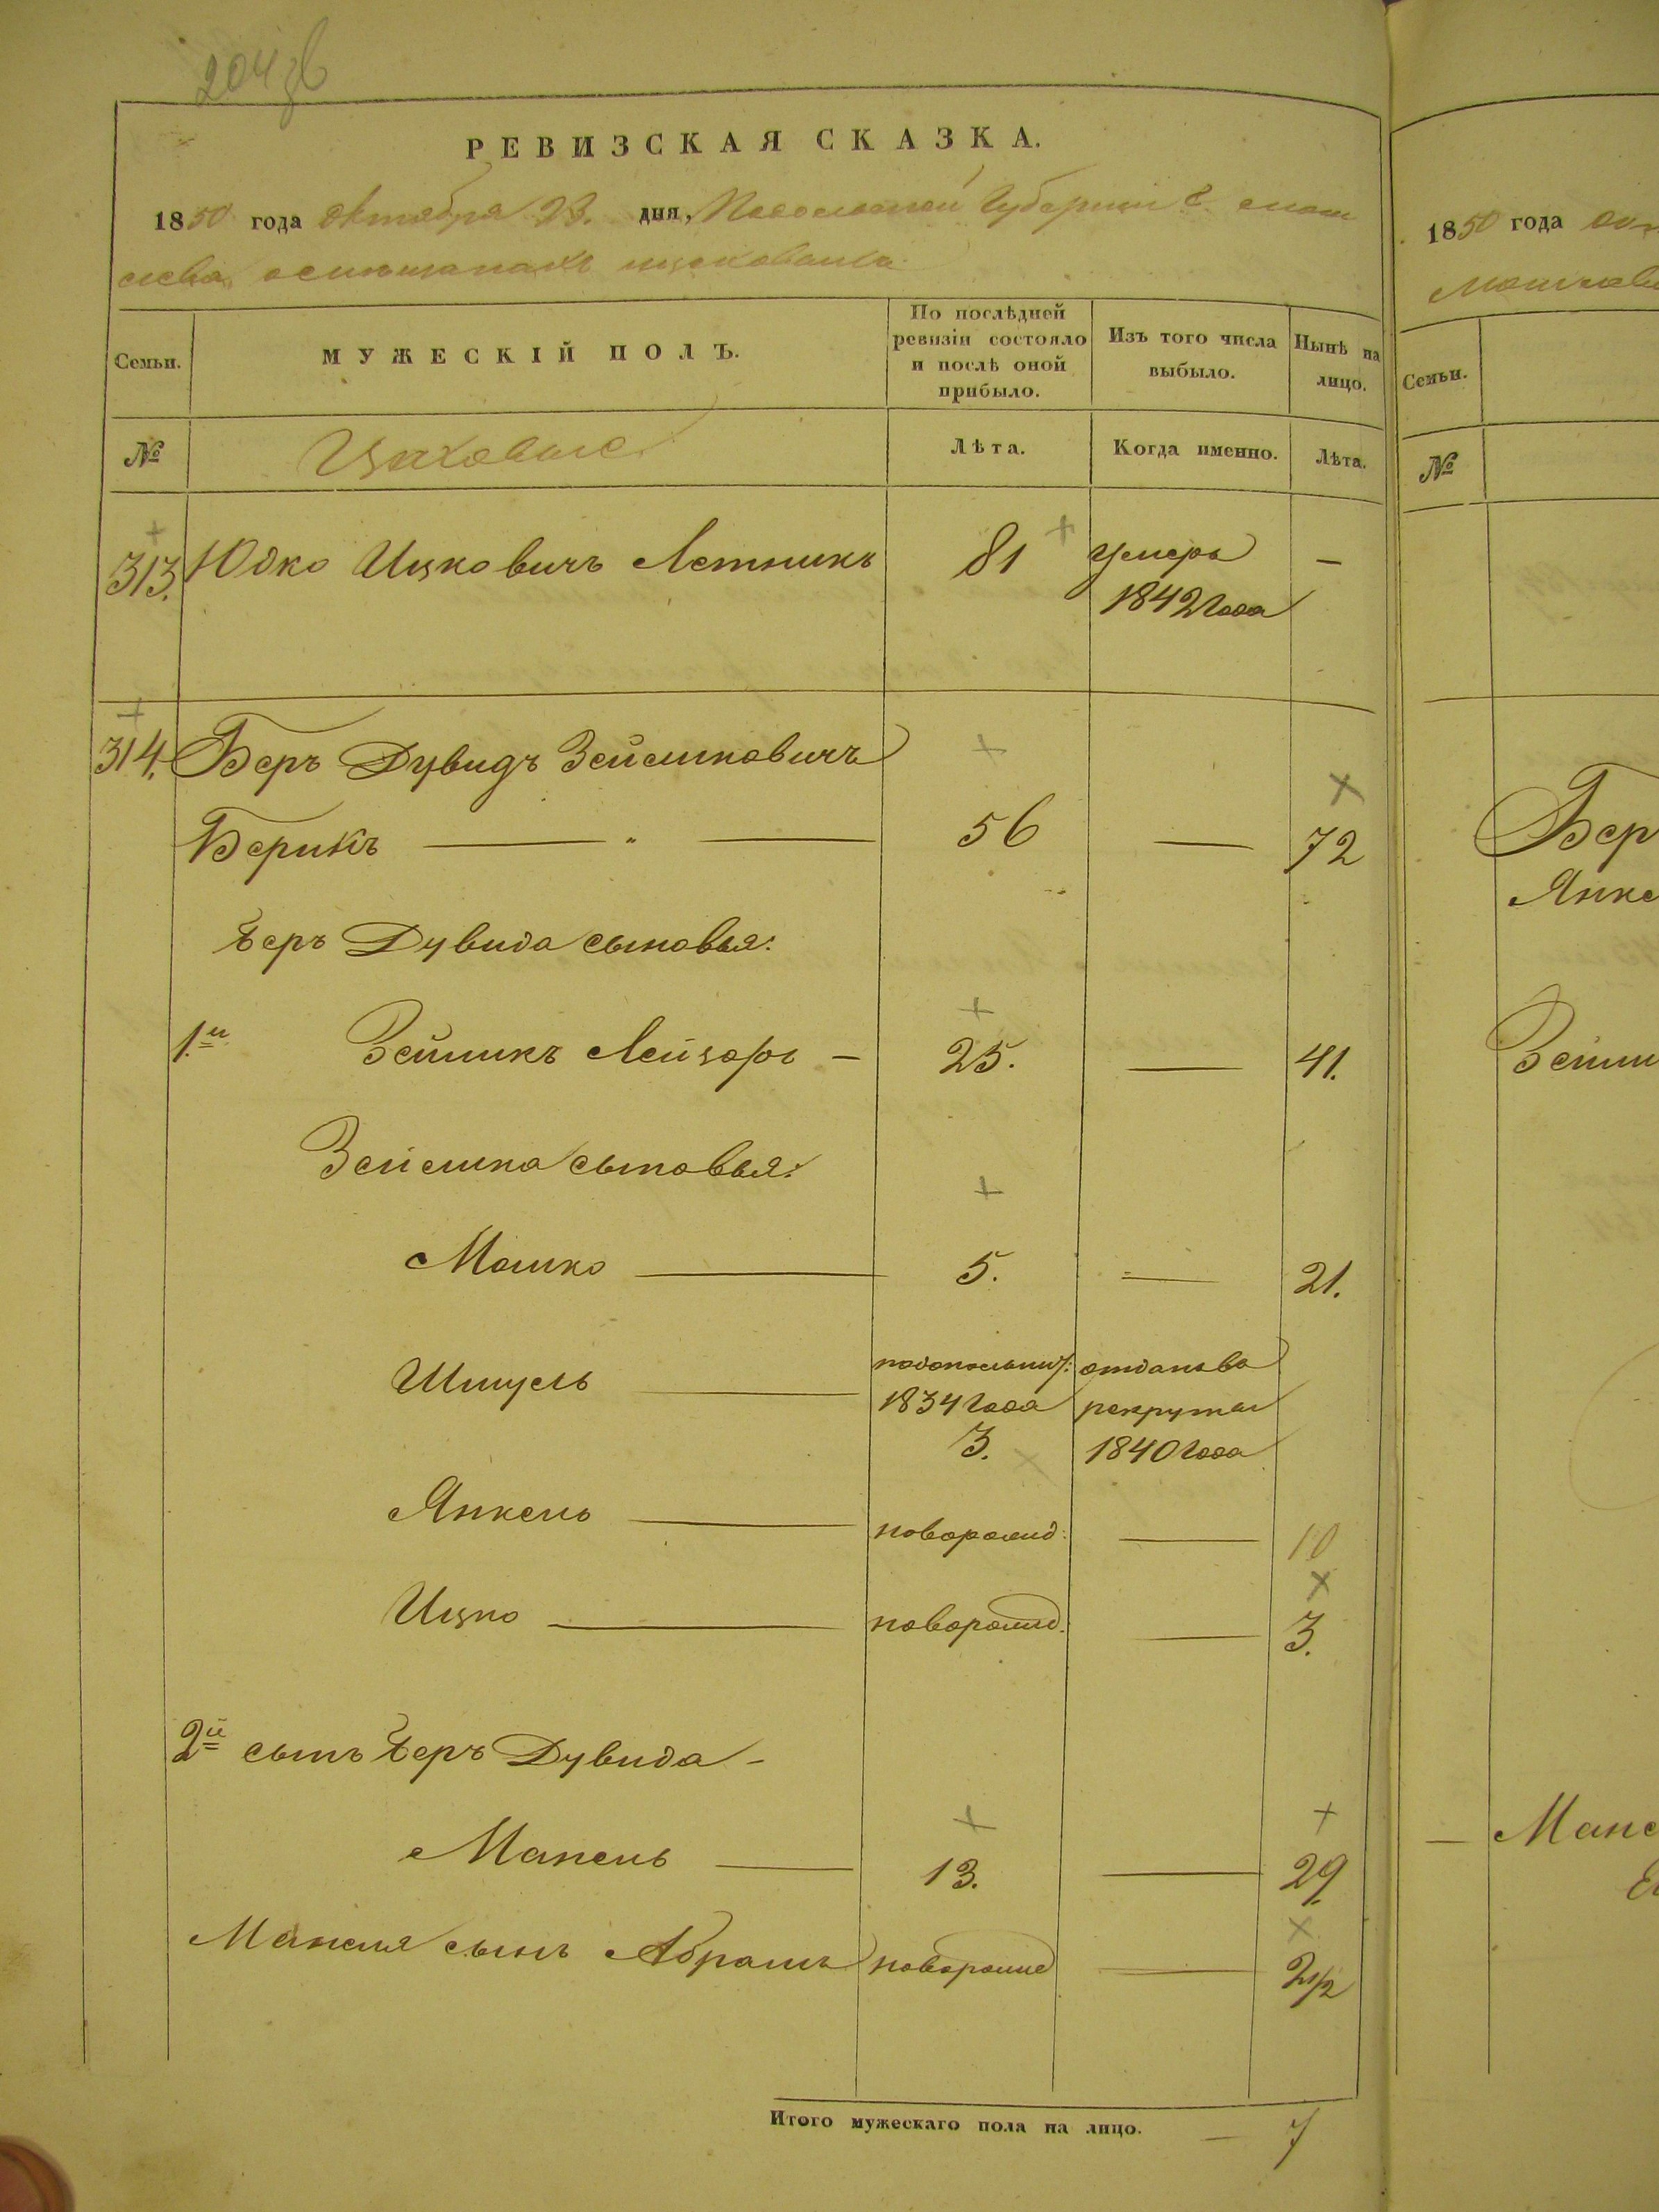 204 зв
РЕВИЗСКАЯ СКАЗКА.
1850 года Октября 23. дня, Подольской Губерніи г.
о мѣщанахъ
Семьи.
МУЖЕСКІЙ ПОЛЪ.
По послѣдней ревизіи состояло и послѣ оной прибыло.
Изъ того числа выбыло.
Нынѣ на лицо.
№
Цеховые
Лѣта.
Когда именно.
Лѣта.
313. Юдко Ицковичъ Летникъ 81 умеръ 1842 года —
314. Беръ Дувидъ Зейликовичъ
Берикъ — " — 56 — 72
Беръ Дувида сыновья:
1.й Зейликъ Лейзоръ — 25. — 41.
Зейлика сыновья:
Мошко — 5. — 21.
Шмуель — 1834 года 3. отданъ въ рекруты 1840 года
Янкель — новорожд: — 10
Ицко — новорожд. — 3.
2й сынъ Беръ Дувида —
Манель — 13. — 29.
Манеля сынъ Абрамъ новорожд — 2 1/2
Итого мужескаго пола на лицо. — 7
1850 года
Семьи.
№
Бер
Янке
Зейли
— Мане